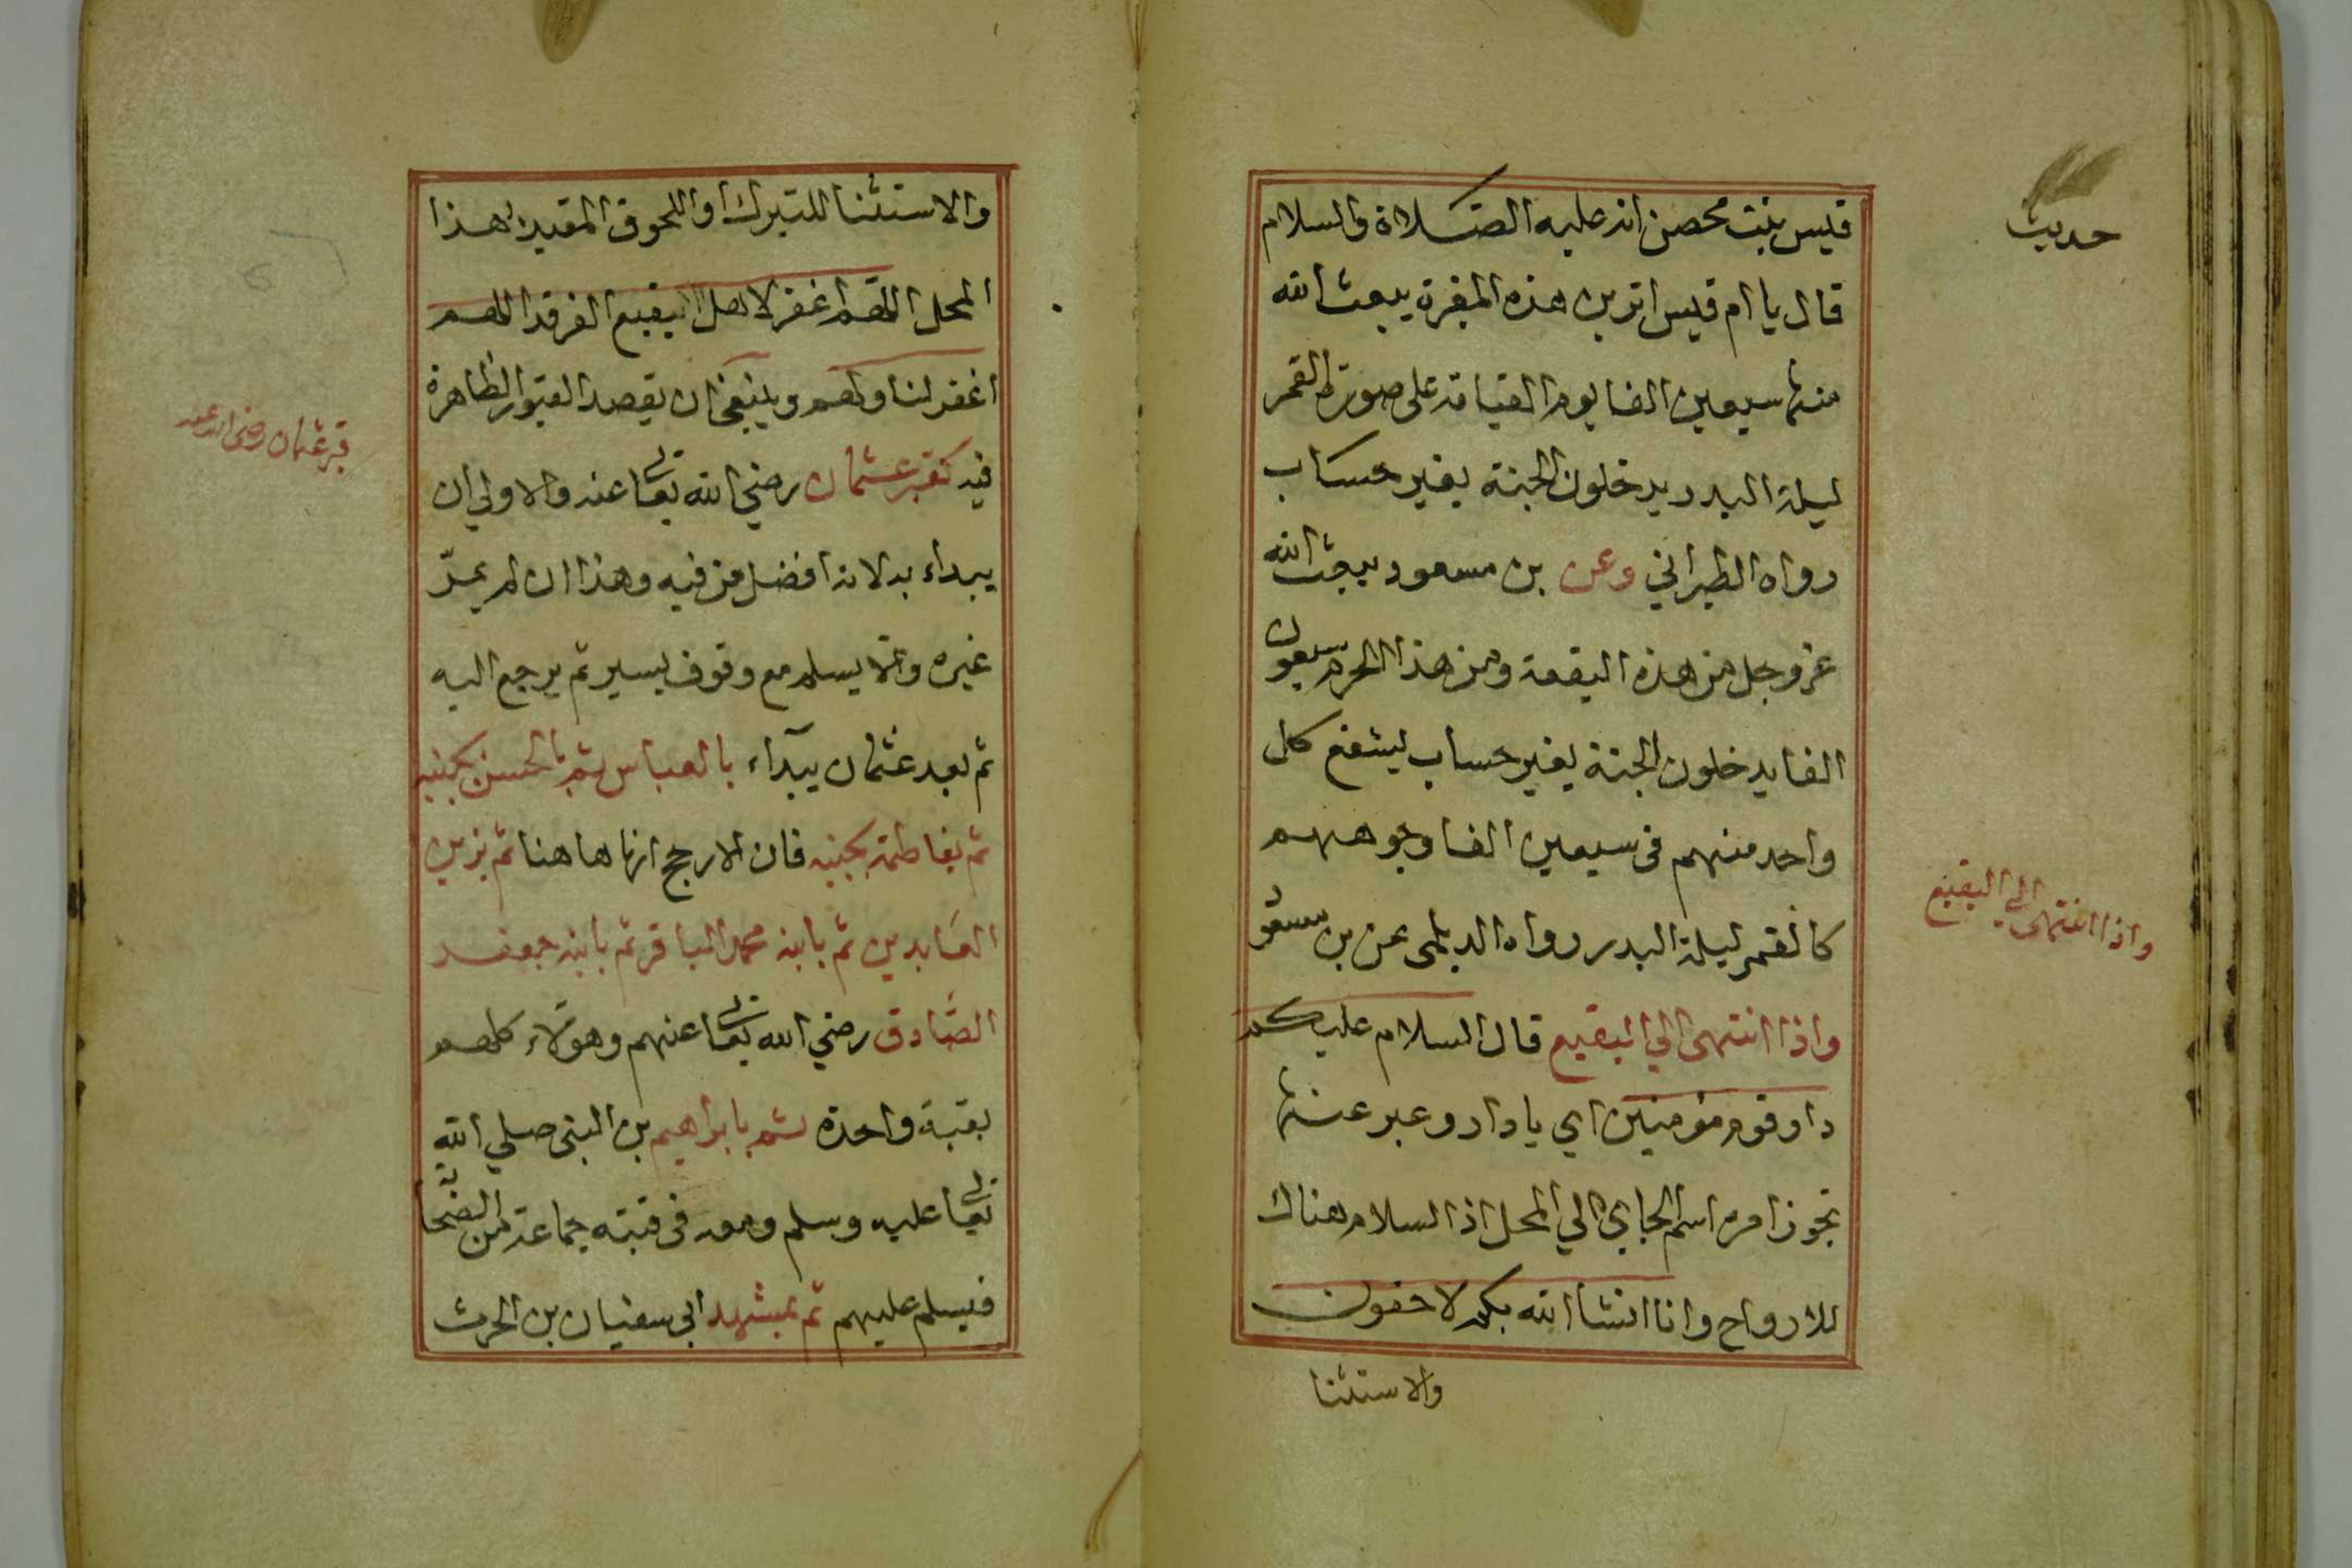 حديث
قيس بنت محصن انه عليه الصلاة والسلام
قال يا ام قيس اترين هذه المقبرة يبعث الله
منها سبعين الفا يوم القيامة على صورة القمر
ليلة البدر يدخلون الجنة بغير حساب
رواه الطبراني وعن بن مسعود يبعث الله
عز وجل من هذه البقعة ومن هذا الحرم سبعون
الفا يدخلون الجنة بغير حساب ليشفع كل
واحد منهم في سبعين الفا وجوههم
كالقمر ليلة البدر رواه الديلمى عن بن مسعو
واذا انتهى الي البقيع
واذا انتهى الي البقيع قال السلام عليكم
دار قوم مؤمنين اي يا دار وعبر عنها
تجوزا من اسم الحاي الي المحل اذ السلام هناك
للارواح وانا انشا الله بكم لاحقون
والاستثنا
والاستثنا للتبرك او اللحوق المقيد لهذا
المحل اللهم اغفر لاهل البقيع الغرقد اللهم
اغفر لنا ولهم وينبغي ان يقصد القبور الظاهرة
قبر عثمان رضي الله عنه
فيه كقبر عثمان رضي الله تعا عنه والاولي ان
يبداء به لانه افضل من فيه وهذا ان لم يمرّ
غيره والا يسلم مع وقوف يسير ثم يرجع اليه
ثم بعد عثمان يبداء بالعباس ثم بالحسن بجنبه
ثم بفاطمة بجنبه فان الارجح انها هاهنا ثم بزين
العابدين ثم بابنه محمد الباقر ثم بابنه جعفر
الصادق رضي الله تعا عنهم وهؤلاء كلهم
بقبة واحدة ثم بابراهيم بن النبي صلي الله
تعا عليه وسلم ومعه في قبته جماعة من الصحا
فيسلم عليهم ثم بمشهد ابي سفيان بن الحرث